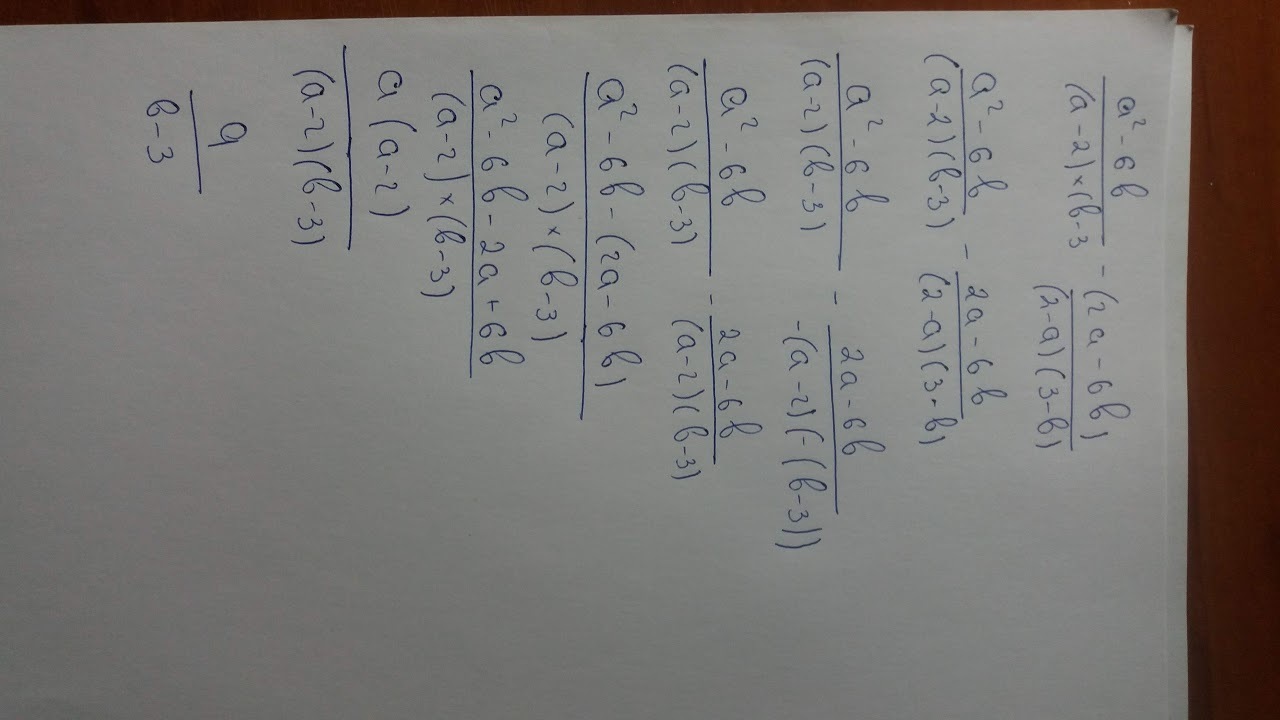 a² - 6b / (a-2)×(b-3 - (2a-6b) / (2-a)(3-b)
a² - 6b / (a-2)(b-3) - 2a-6b / (2-a)(3-b)
a² - 6b / (a-2)(b-3) - 2a-6b / -(a-2)(-(b-3))
a² - 6b / (a-2)(b-3) - 2a-6b / (a-2)(b-3)
a² - 6b - (2a-6b) / (a-2)×(b-3)
a² - 6b - 2a + 6b / (a-2)×(b-3)
a(a-2) / (a-2)(b-3)
a / b-3